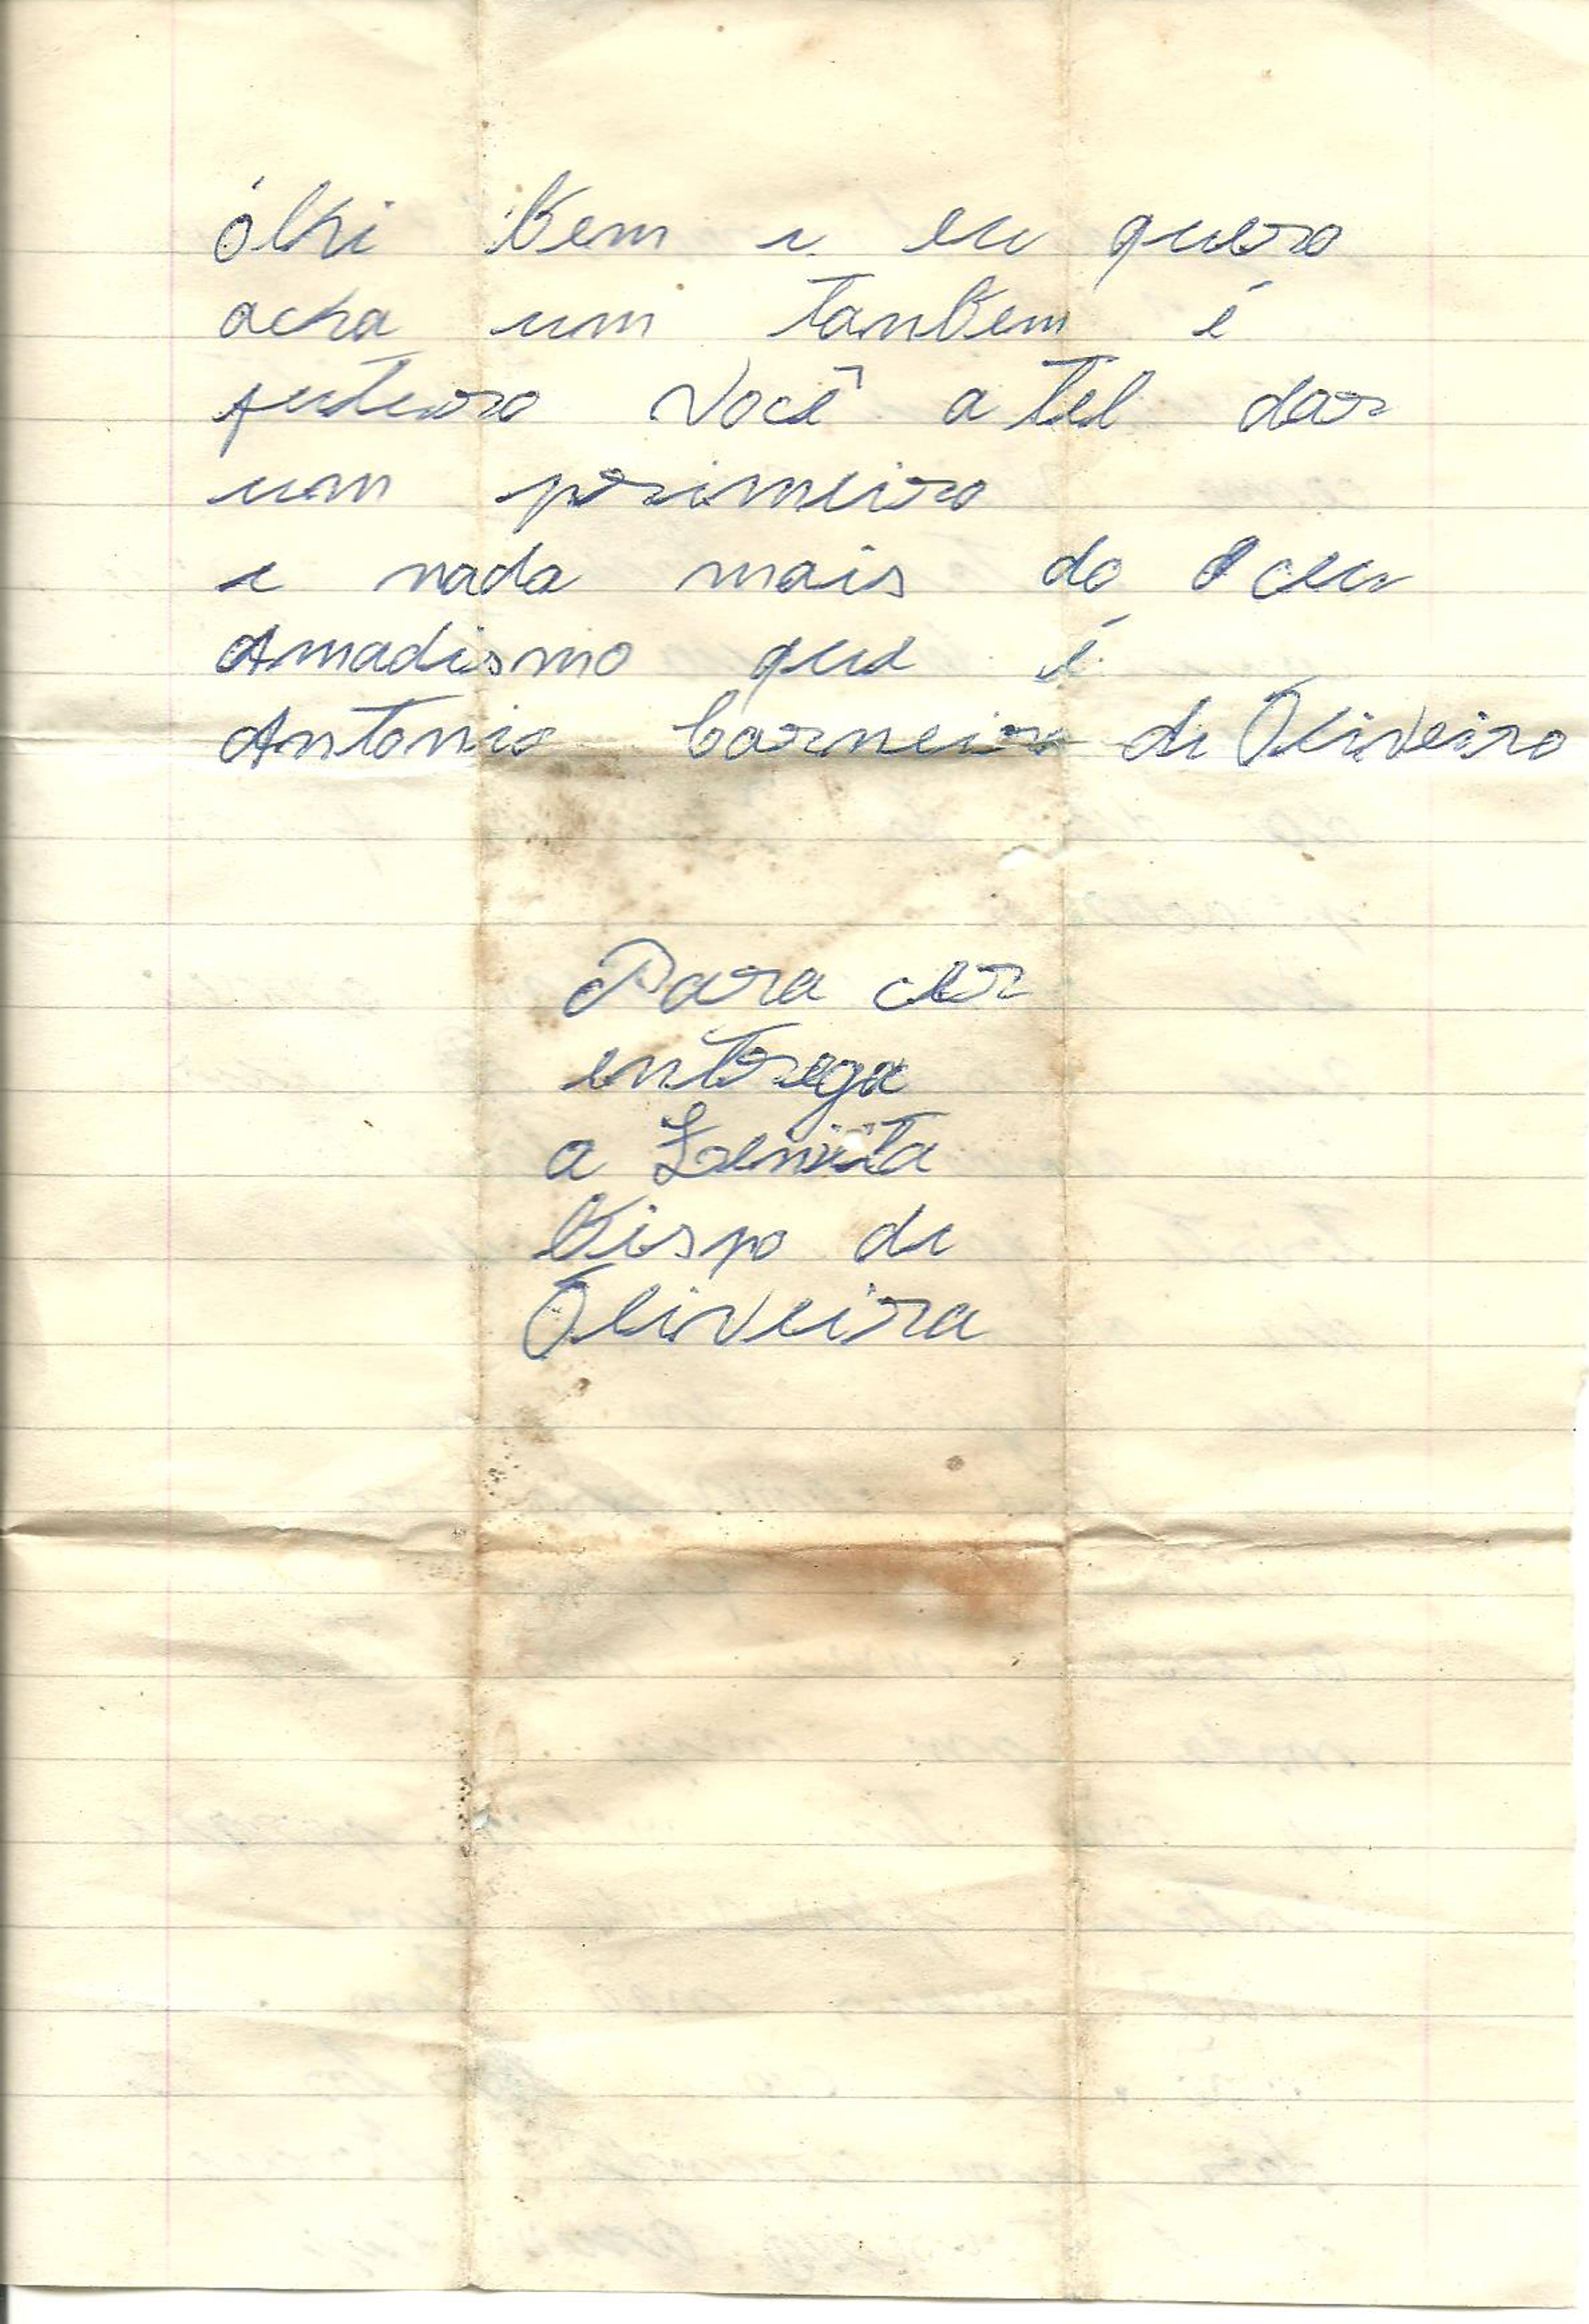 ólhi bem e eu quero
acha um tanbem é
você atel dar
um primeiro
e nada mais do ceu
Amadismo que é
Antonio Carneiro de Oliveira
Para cer
entrega
a Zenita
Bispo de
Oliveira